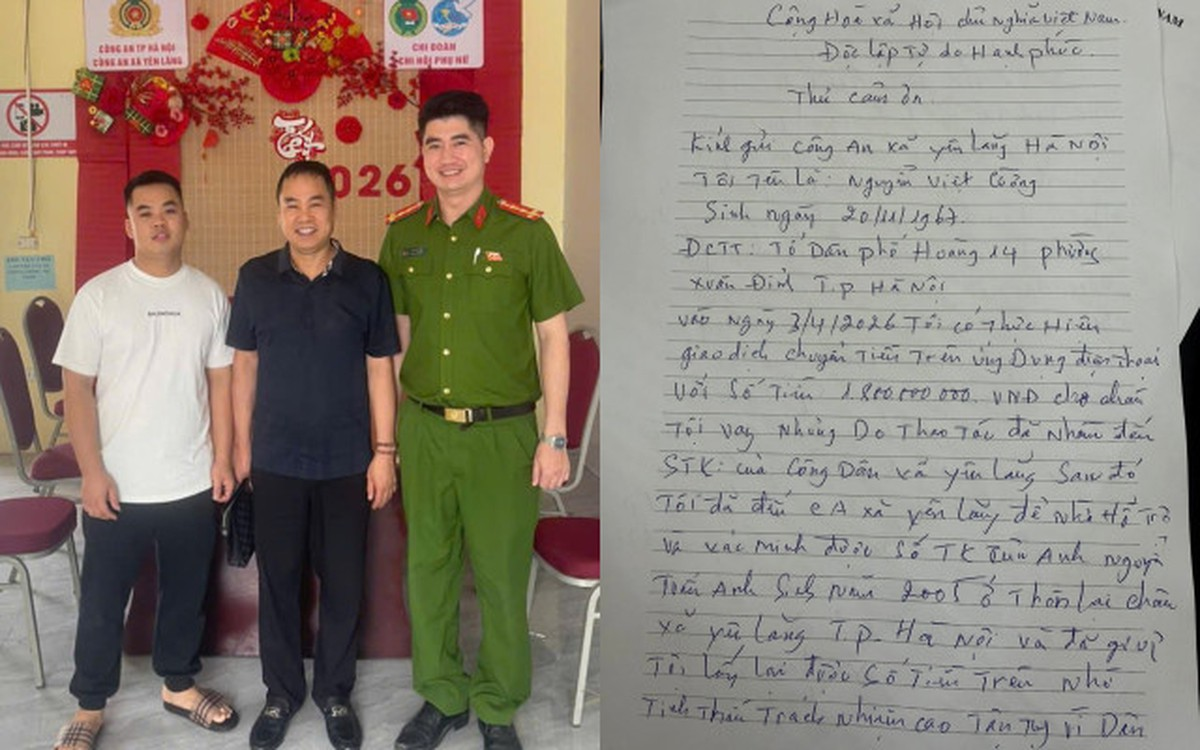 CÔNG AN TP HÀ NỘI
CÔNG AN XÃ YÊN LÃNG
CHI ĐOÀN
CHI HỘI PHỤ NỮ
Tết
026
BALENCIAGA
NAM
Cộng Hoà xã Hội chủ Nghĩa Việt Nam.
Độc lập Tự do Hạnh phúc.
Thư cảm ơn.
Kính gửi Công An xã yên lãng Hà Nội
Tôi Tên là: Nguyễn Việt Cường
Sinh ngày 20/11/1967.
ĐCTT: Tổ Dân phố Hoàng 14 phường
xuân Đỉnh T.p Hà Nội
vào ngày 3/4/2026 Tôi có Thực Hiện
giao dịch chuyển Tiền Trên ứng Dụng điện thoại
Với Số Tiền 1.800.000.000. VND cho cháu
Tôi vay Nhưng Do Thao Tác đã Nhầm đến
STK: của Công Dân xã yên lãng Sau đó
Tôi đã đến CA xã yên lãng để Nhờ Hỗ Trợ
và xác minh được Số TK của Anh Nguyễn
Tuấn Anh Sinh Năm 2005 ở Thôn Lai Châu
xã yên lãng T.p Hà Nội và đã giúp
Tôi lấy lại được Số Tiền Trên Nhờ
Tinh Thần Trách Nhiệm cao Tận Tụy vì Dân